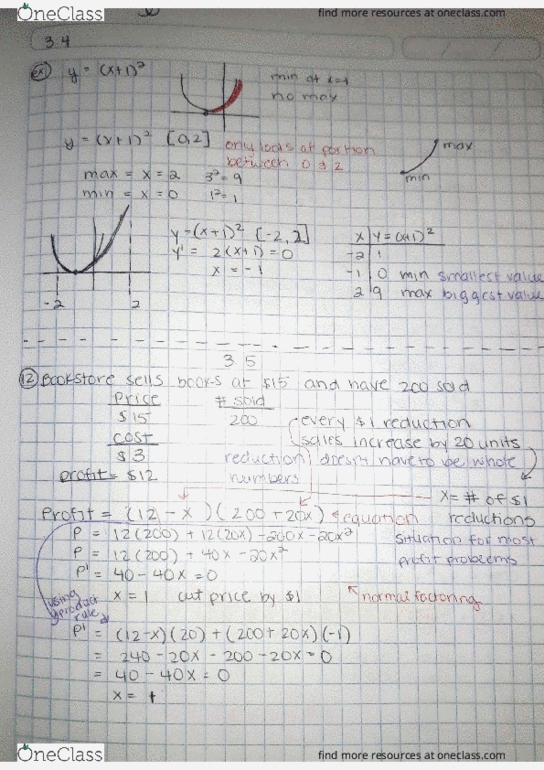 OneClass
find more resources at oneclass.com
3.4
ex) y = (x+1)²
min at x=-1
no max
y = (x+1)² [0,2] only looks at portion
between 0 & 2
max
min
max = x = 2 3²=9
min = x = 0 1²=1
y=(x+1)² [-2,2]
y' = 2(x+1)=0
x = -1
x | y=(x+1)²
-2 | 1
-1 | 0 min smallest value
2 | 9 max biggest value
-2 2
3.5
12 Bookstore sells books at $15 and have 200 sold
Price # sold
$15 200
every $1 reduction
sales increase by 20 units
cost
$3
reduction doesn't have to be whole
numbers
profit = $12
x = # of $1
reductions
Profit = (12-x)(200+20x) ← equation
situation for most
profit problems
P = 12(200) + 12(20x) - 200x - 20x²
P = 12(200) + 40x - 20x²
P' = 40 - 40x = 0
x = 1 cut price by $1
normal factoring
using
product
rule
P' = (12-x)(20) + (200+20x)(-1)
= 240 - 20x - 200 - 20x = 0
= 40 - 40x = 0
x = 1
OneClass
find more resources at oneclass.com